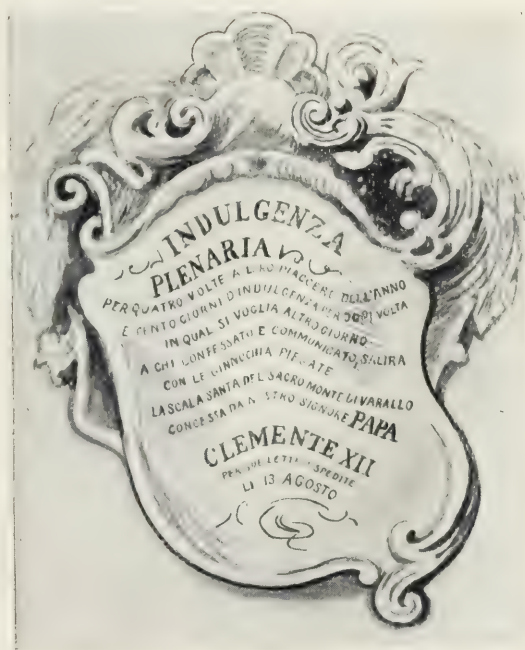 INDULGENZA
PLENARIA
PER QUATRO VOLTE A LORO PIACCERE DELL'ANNO
E CENTO GIORNI D'INDULGENZA PER OGNI VOLTA
IN QUAL SI VOGLIA ALTRO GIORNO
A CHI CONFESSATO E COMMUNICATO, SALIRA
CON LE GINNOCHIA PIEGATE
LA SCALA SANTA DEL SACRO MONTE DI VARALLO
CONCESSA DA NOSTRO SIGNORE PAPA
CLEMENTE XII
PER SUE LETTERE SPEDITE
LI 13 AGOSTO